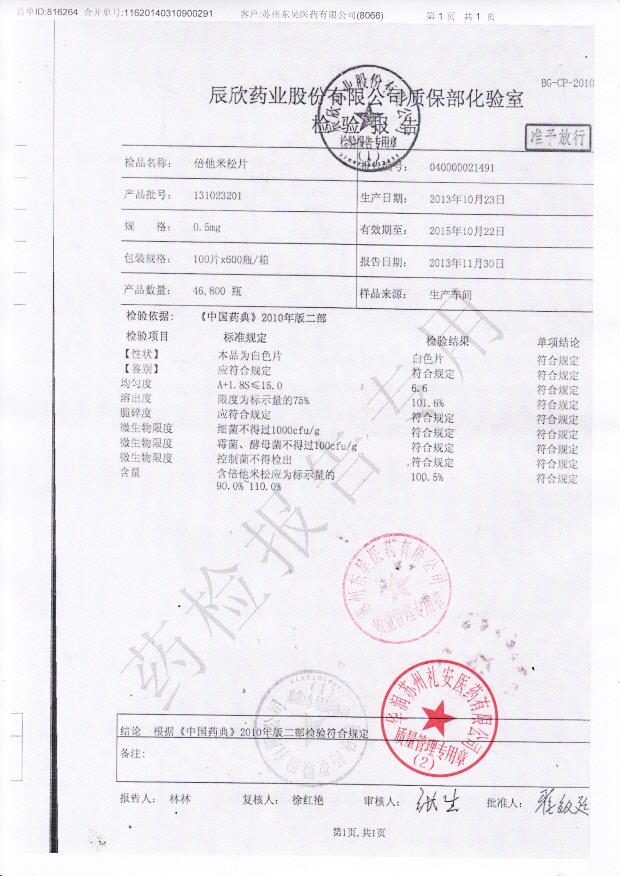 总单ID:816264 合并单号:11620140310900291 客户:苏州东吴医药有限公司(8066) 第 1 页 共 1 页
BG-CP-2010
辰欣药业股份有限公司质保部化验室
检 验 报 告
准予放行
检验报告专用章
(1)
检品名称: 倍他米松片 编号: 040000021491
产品批号: 131023201 生产日期: 2013年10月23日
规 格: 0.5mg 有效期至: 2015年10月22日
包装规格: 100片x600瓶/箱 报告日期: 2013年11月30日
产品数量: 46,800 瓶 样品来源: 生产车间
检验依据: 《中国药典》2010年版二部
检验项目 标准规定 检验结果 单项结论
【性状】 本品为白色片 白色片 符合规定
【鉴别】 应符合规定 符合规定 符合规定
均匀度 A+1.8S≤15.0 6.6 符合规定
溶出度 限度为标示量的75% 101.6% 符合规定
脆碎度 应符合规定 符合规定 符合规定
微生物限度 细菌不得过1000cfu/g 符合规定 符合规定
微生物限度 霉菌、酵母菌不得过100cfu/g 符合规定 符合规定
微生物限度 控制菌不得检出 符合规定 符合规定
含量 含倍他米松应为标示量的 100.5% 符合规定
90.0%~110.0%
药检报告专用
苏州东吴医药有限公司
质量管理专用章
华润苏州礼安医药有限公司
质量管理专用章
(2)
结论 根据《中国药典》2010年版二部检验符合规定
备注:
报告人: 林林 复核人: 徐红艳 审核人: 批准人:
第1页,共1页